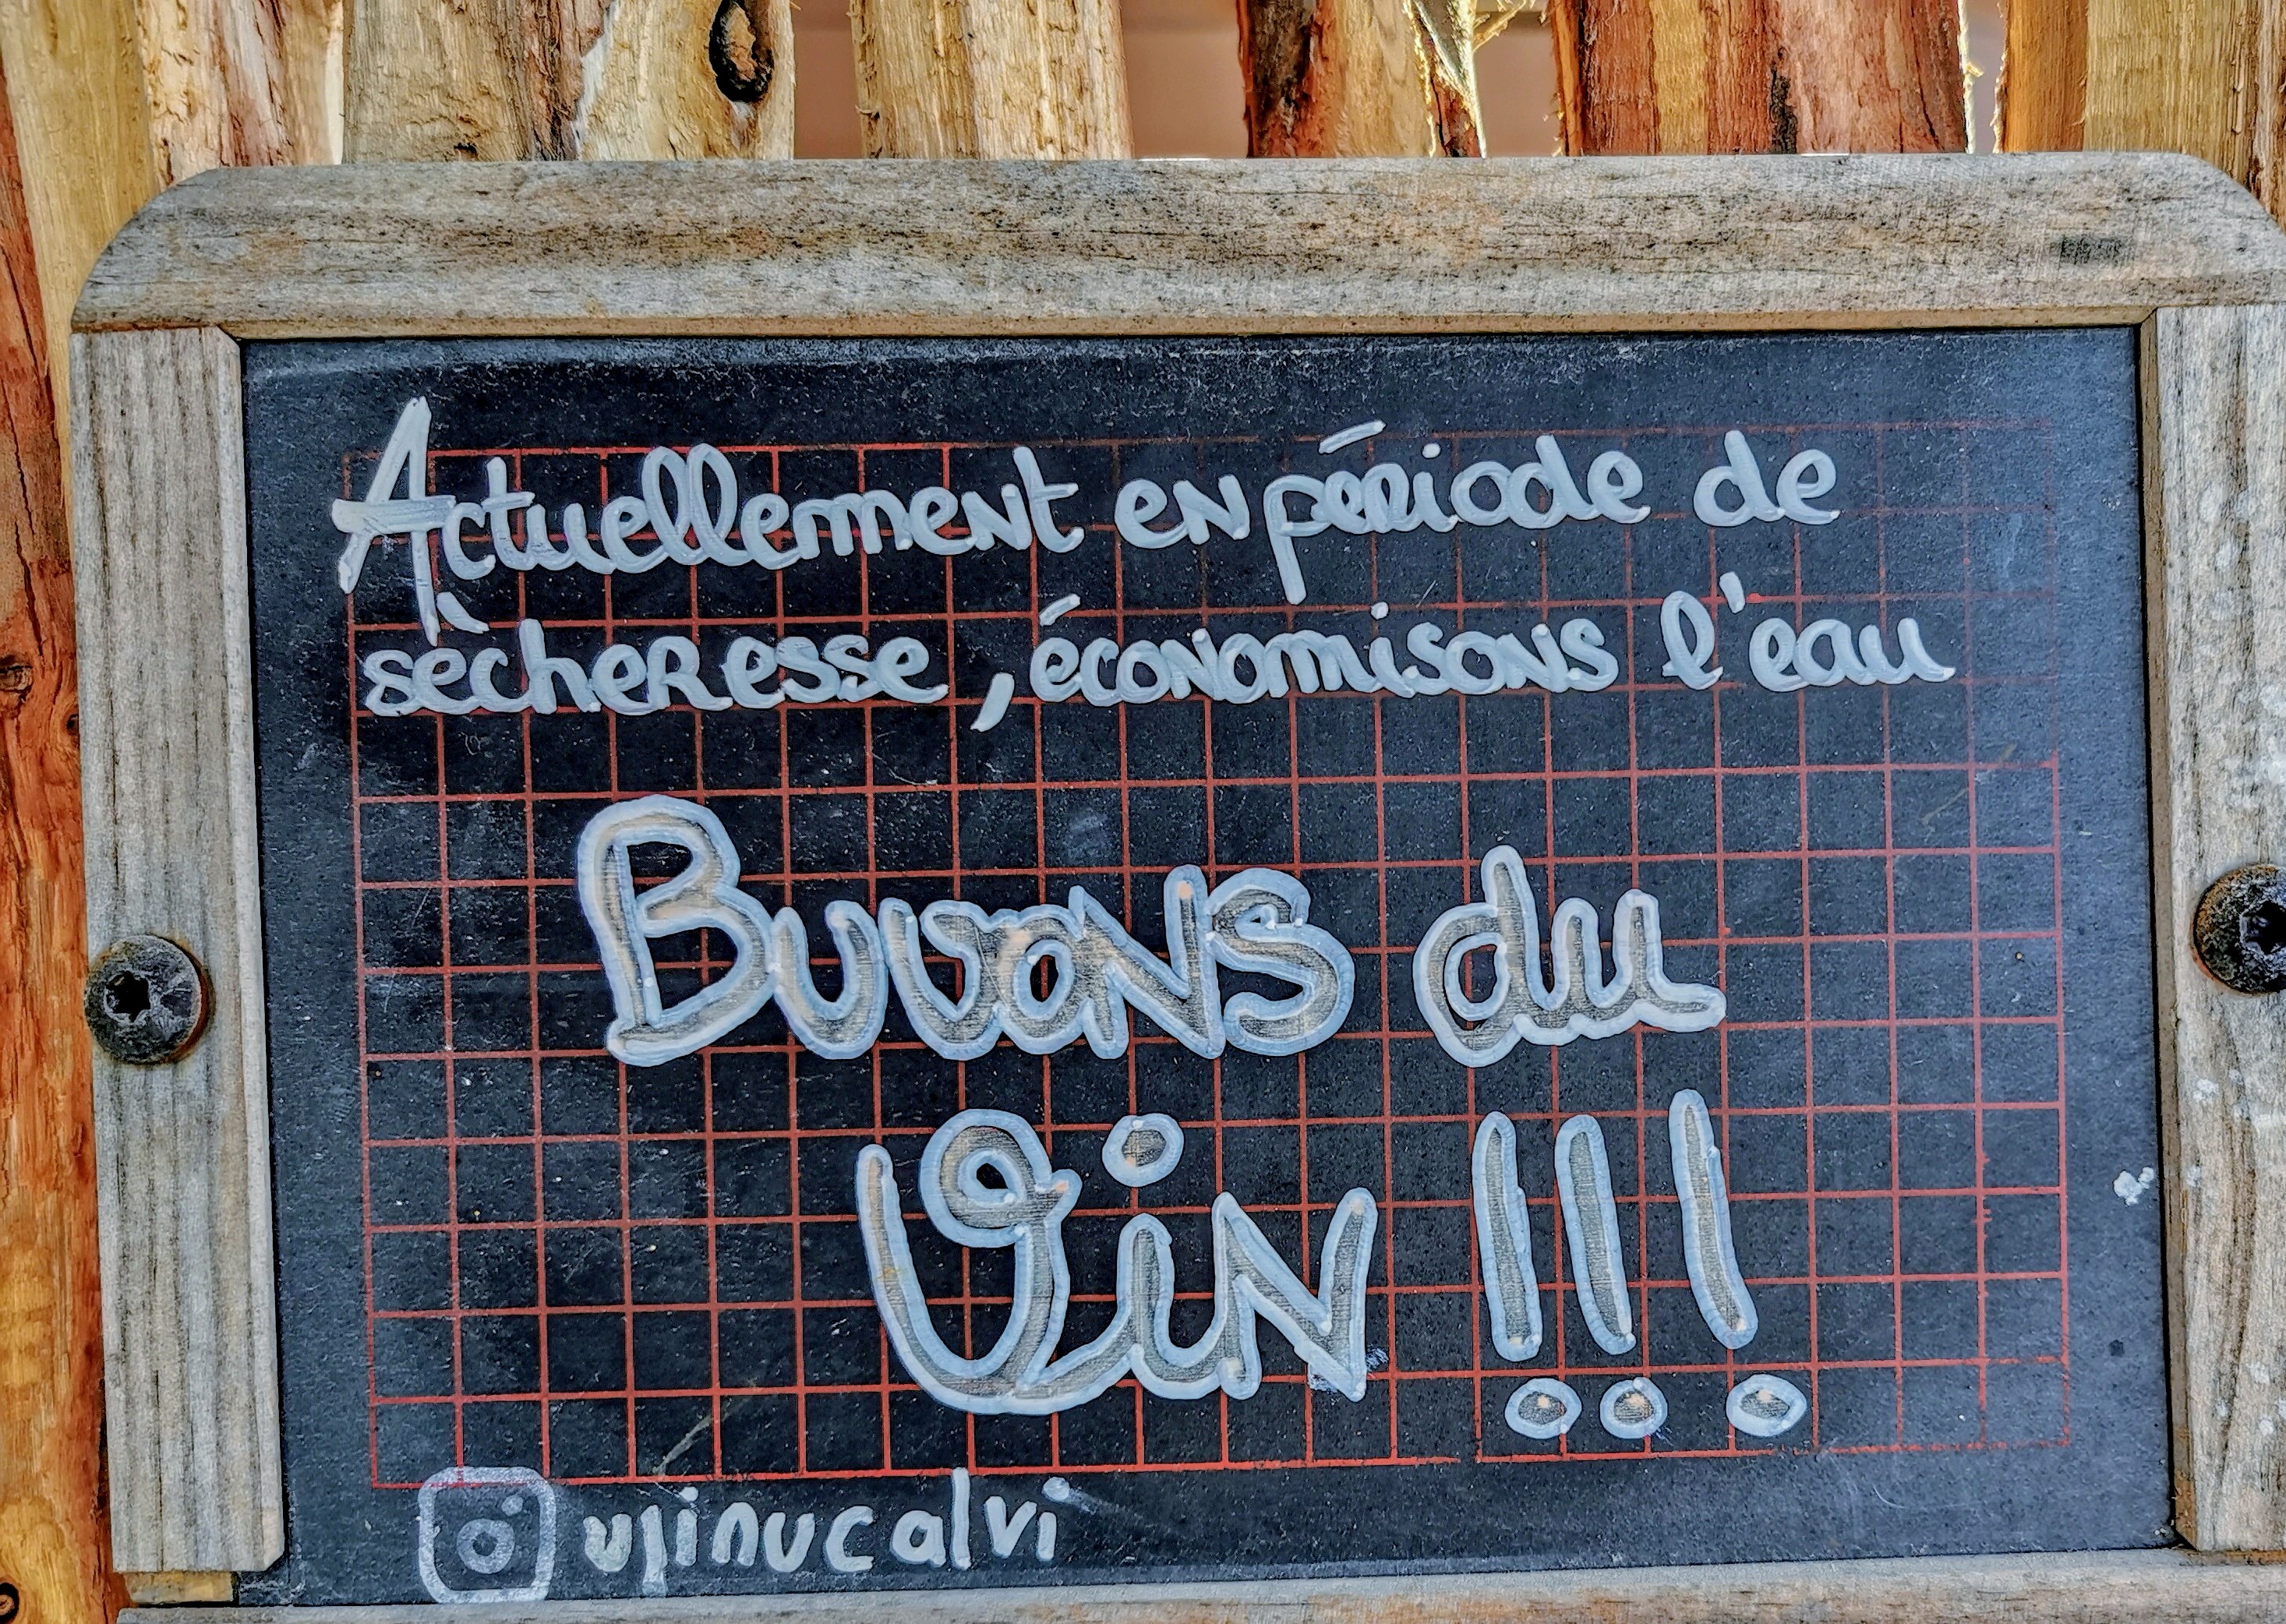 Actuellement en période de
sècheresse, économisons l'eau
Buvons du
Vin !!!
ujinucalvi